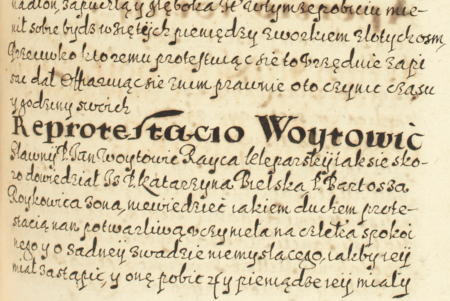 nadłon, zapuchłą y głęboką. W tymże pobiciu mie-
nił sobie bydz wziętych pieniędzy z workiem złotych osm,
przeciwko ktoremu protestuiąc się to Urzędnie zapi
sac dał offiaruiąc się z nim prawnie oto czynic czasu
y godziny swoich
Reprotestacio Woytowic
Sławny P. Jan Woytowic Rayca kleparskij iak sie sko-
ro dowiedział Is P. Katarzyna Bielska P. Bartosza
Roykowica zona, niewiedziec iakiem duchem prote-
stacią nan potwarliwą uczyniela na człeka spokoi
nego y o żadnej zwadzie niemyslącego, iakby ieij
miał zastąpic, y onę pobic y pieniądze ieij miały